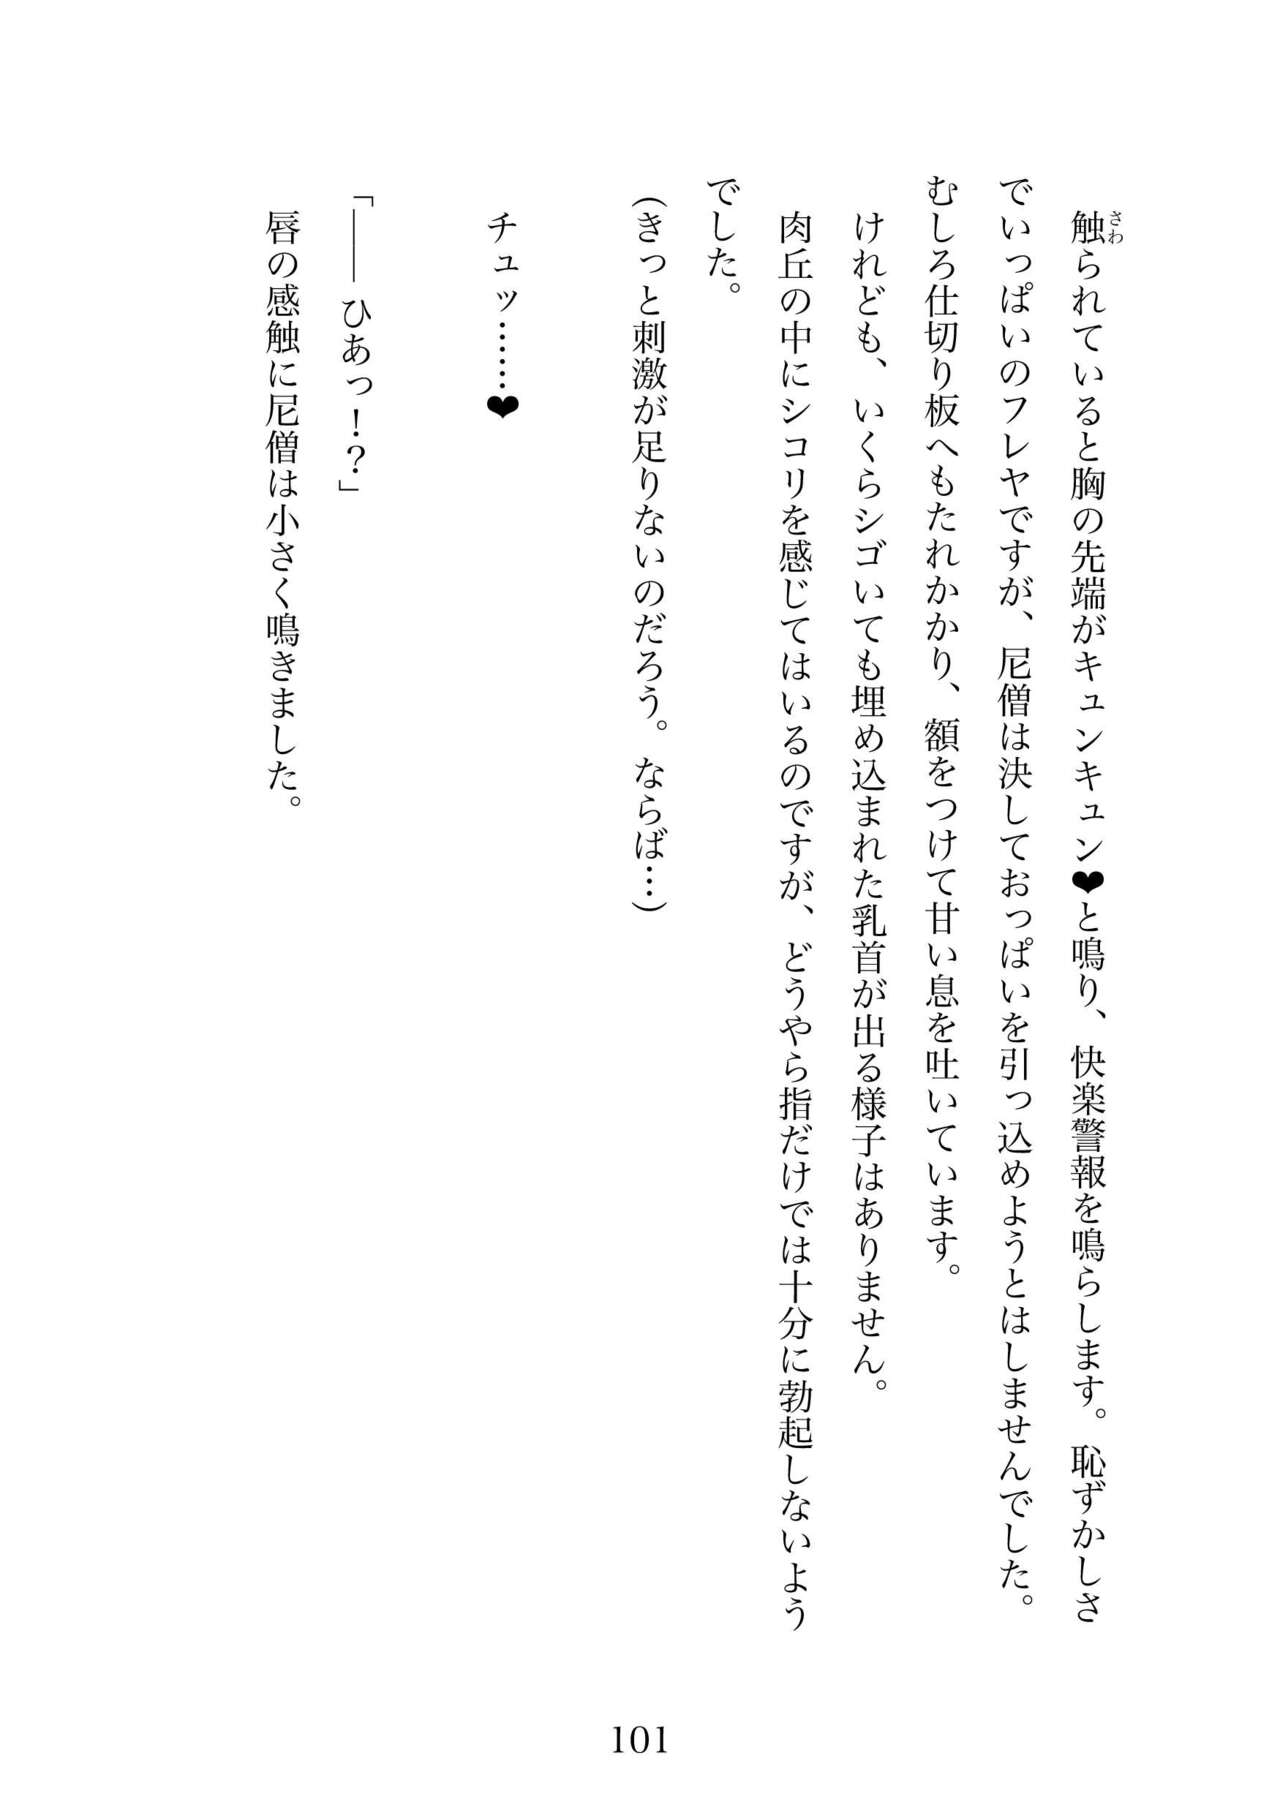 触られていると胸の先端がキュンキュン❤と鳴り、快楽警報を鳴らします。恥ずかしさ
でいっぱいのフレヤですが、尼僧は決しておっぱいを引っ込めようとはしませんでした。
むしろ仕切り板へもたれかかり、額をつけて甘い息を吐いています。
けれども、いくらシゴいても埋め込まれた乳首が出る様子はありません。
肉丘の中にシコリを感じてはいるのですが、どうやら指だけでは十分に勃起しないよう
でした。
(きっと刺激が足りないのだろう。ならば…)
チュッ……❤
「――ひあっ!?」
唇の感触に尼僧は小さく鳴きました。
101